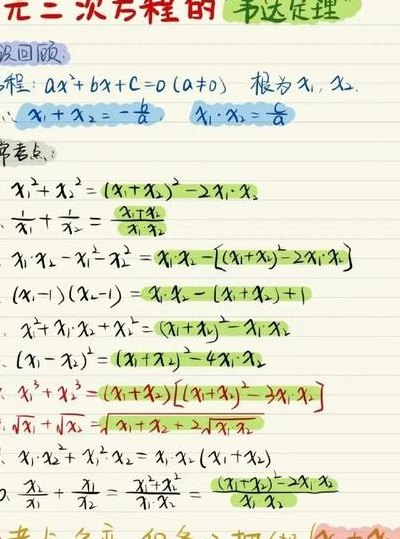 元二次方程的"韦达定理"
回顾:
程: ax²+bx+c=0 (a≠0) 根为 x₁, x₂.
∴ x₁+x₂=-b/a, x₁·x₂=c/a
常考点:
x₁²+x₂²=(x₁+x₂)²-2x₁·x₂
1/x₁+1/x₂=(x₁+x₂)/(x₁·x₂)
x₁·x₂-x₁²-x₂²=x₁·x₂-[(x₁+x₂)²-2x₁·x₂]
(x₁-1)(x₂-1)=x₁·x₂-(x₁+x₂)+1
x₁²+x₁·x₂+x₂²=(x₁+x₂)²-x₁·x₂
(x₁-x₂)²=(x₁+x₂)²-4x₁·x₂
x₁³+x₂³=(x₁+x₂)[(x₁+x₂)²-3x₁·x₂]
√x₁+√x₂=√(x₁+x₂+2√(x₁·x₂))
x₁·x₂²+x₁²·x₂=x₁·x₂(x₁+x₂)
x₂/x₁+x₁/x₂=(x₁²+x₂²)/(x₁·x₂)=((x₁+x₂)²-2x₁·x₂)/(x₁·x₂)